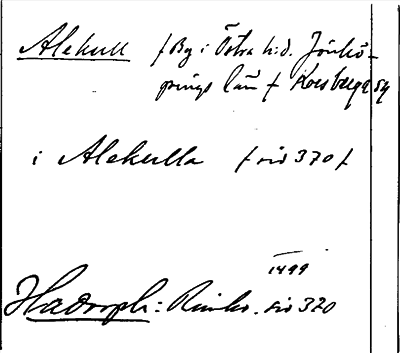 Alekull / By i Östra h:d. Jönkö-
pings län / Korsberga sn
i Alekulla / sid 370 /
1499
Hadorph: Rimkr. sid 320